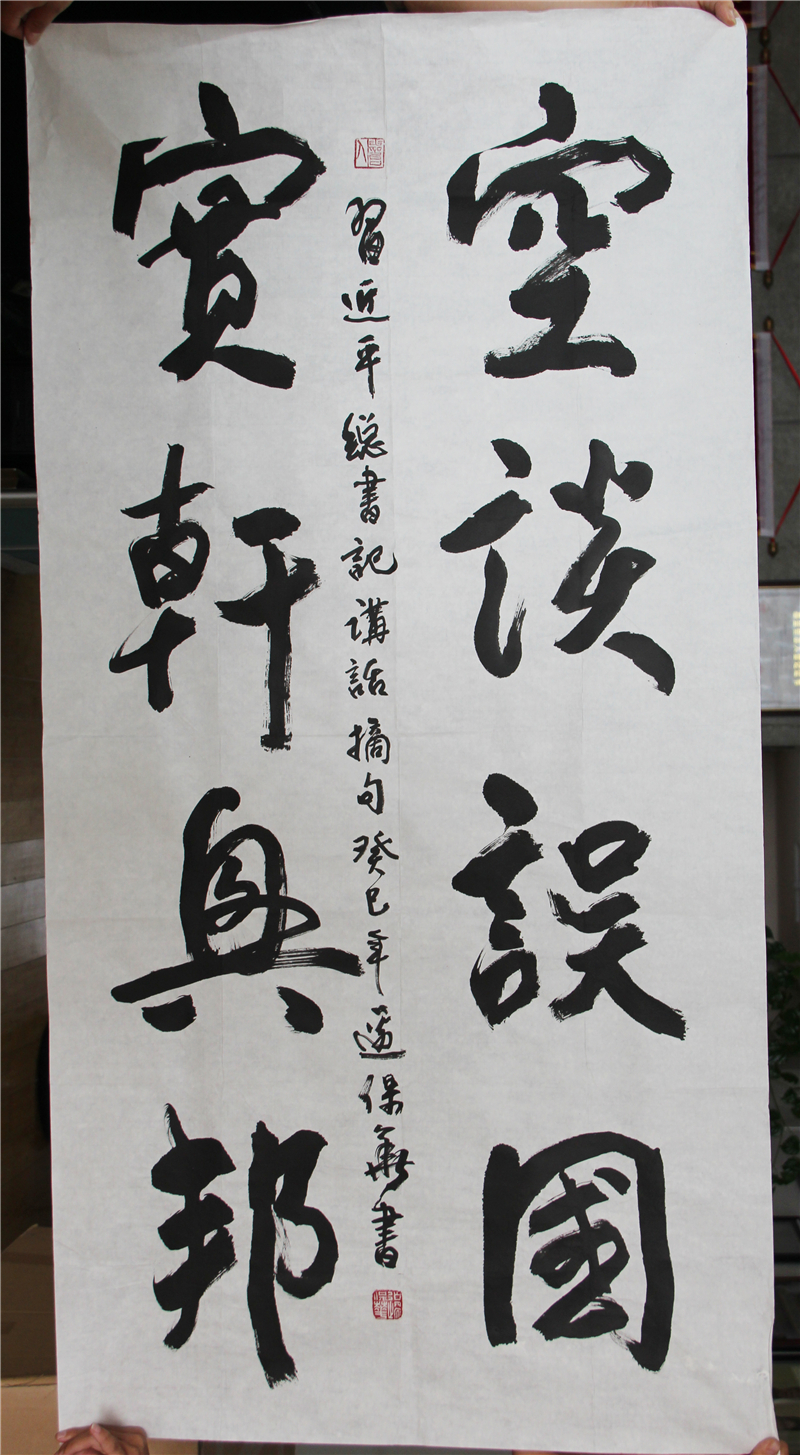 空談誤國
實幹興邦
習近平總書記講話摘句癸巳年邊保華書